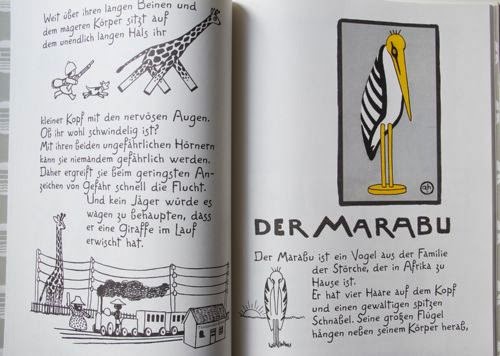 Weit über ihren langen Beinen und
dem mageren Körper sitzt auf
dem unendlich langen Hals ihr
kleiner Kopf mit den nervösen Augen.
Ob ihr wohl schwindelig ist?
Mit ihren beiden ungefährlichen Hörnern
kann sie niemandem gefährlich werden.
Daher ergreift sie beim geringsten An-
zeichen von Gefahr schnell die Flucht.
Und kein Jäger würde es
wagen zu behaupten, dass
er eine Giraffe im Lauf
erwischt hat.
DER MARABU
Der Marabu ist ein Vogel aus der Familie
der Störche, der in Afrika zu
Hause ist.
Er hat vier Haare auf dem Kopf
und einen gewaltigen spitzen
Schnabel. Seine großen Flügel
hängen neben seinem Körper herab,